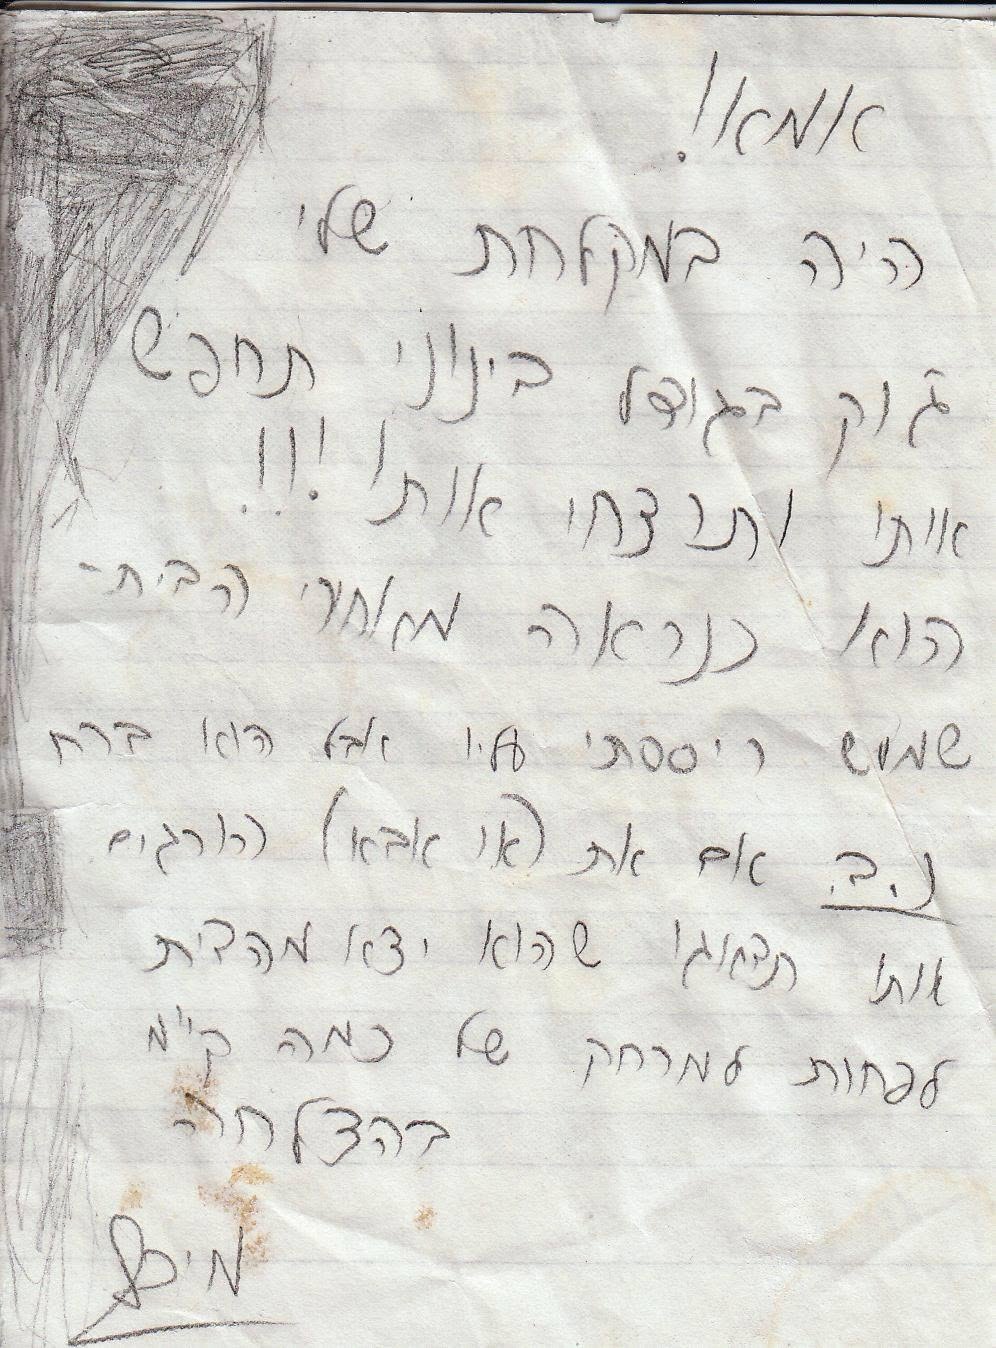 אמא!
היה במקלחת שלי
ג'וק בגודל בינוני תחפש
אותו ותרצחי אותו!!!
הוא כנראה מאחורי הבית-
שמוש ריססתי עליו אבל הוא ברח
נ.ב. אם את (או אבא) הורגים
אותו תדאגו שהוא יצא מהבית
לפחות למרחק של כמה ק"מ
בהצלחה